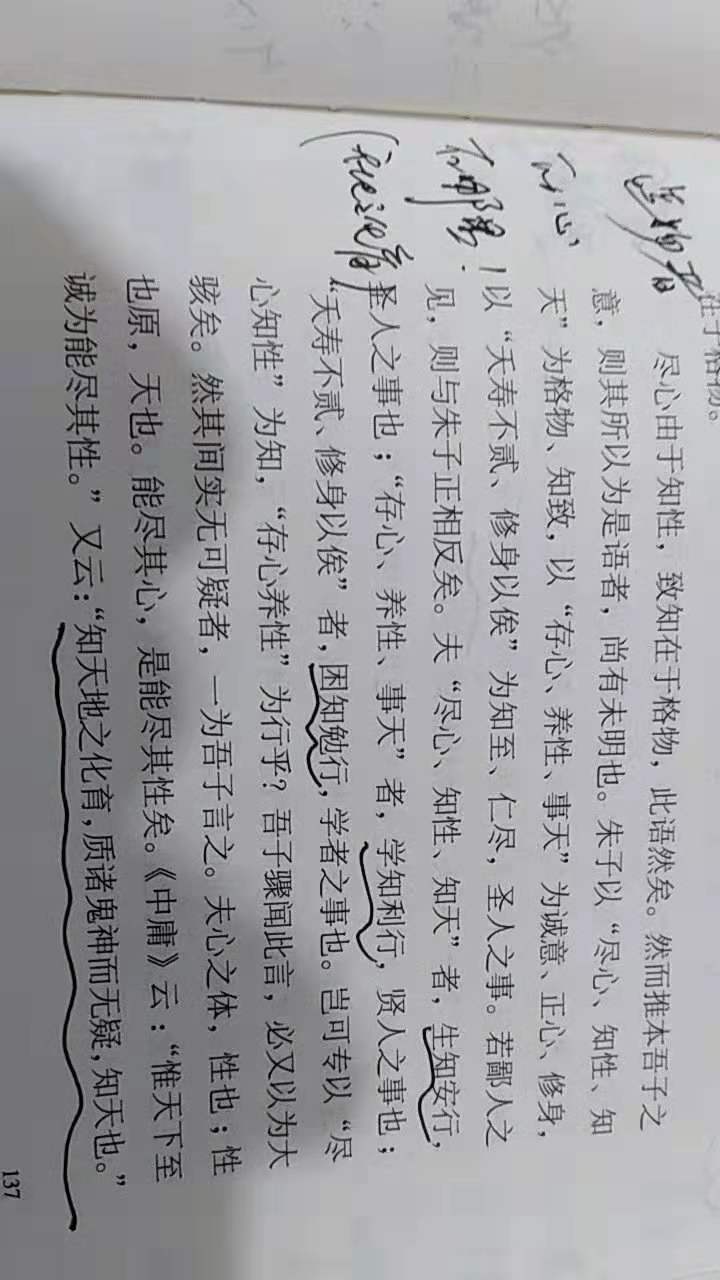 性于格物。
尽心由于知性，致知在于格物，此语然矣。然而推本吾子之
意，则其所以为是语者，尚有未明也。朱子以“尽心、知性、知
天”为格物、知致，以“存心、养性、事天”为诚意、正心、修身，
以“夭寿不贰、修身以俟”为知至、仁尽，圣人之事。若鄙人之
见，则与朱子正相反矣。夫“尽心、知性、知天”者，生知安行，
圣人之事也；“存心、养性、事天”者，学知利行，贤人之事也；
“夭寿不贰、修身以俟”者，困知勉行，学者之事也。岂可专以“尽
心知性”为知，“存心养性”为行乎？吾子骤闻此言，必又以为大
骇矣。然其间实无可疑者，一为吾子言之。夫心之体，性也；性
也原，天也。能尽其心，是能尽其性矣。《中庸》云：“惟天下至
诚为能尽其性。”又云：“知天地之化育，质诸鬼神而无疑，知天也。”
137